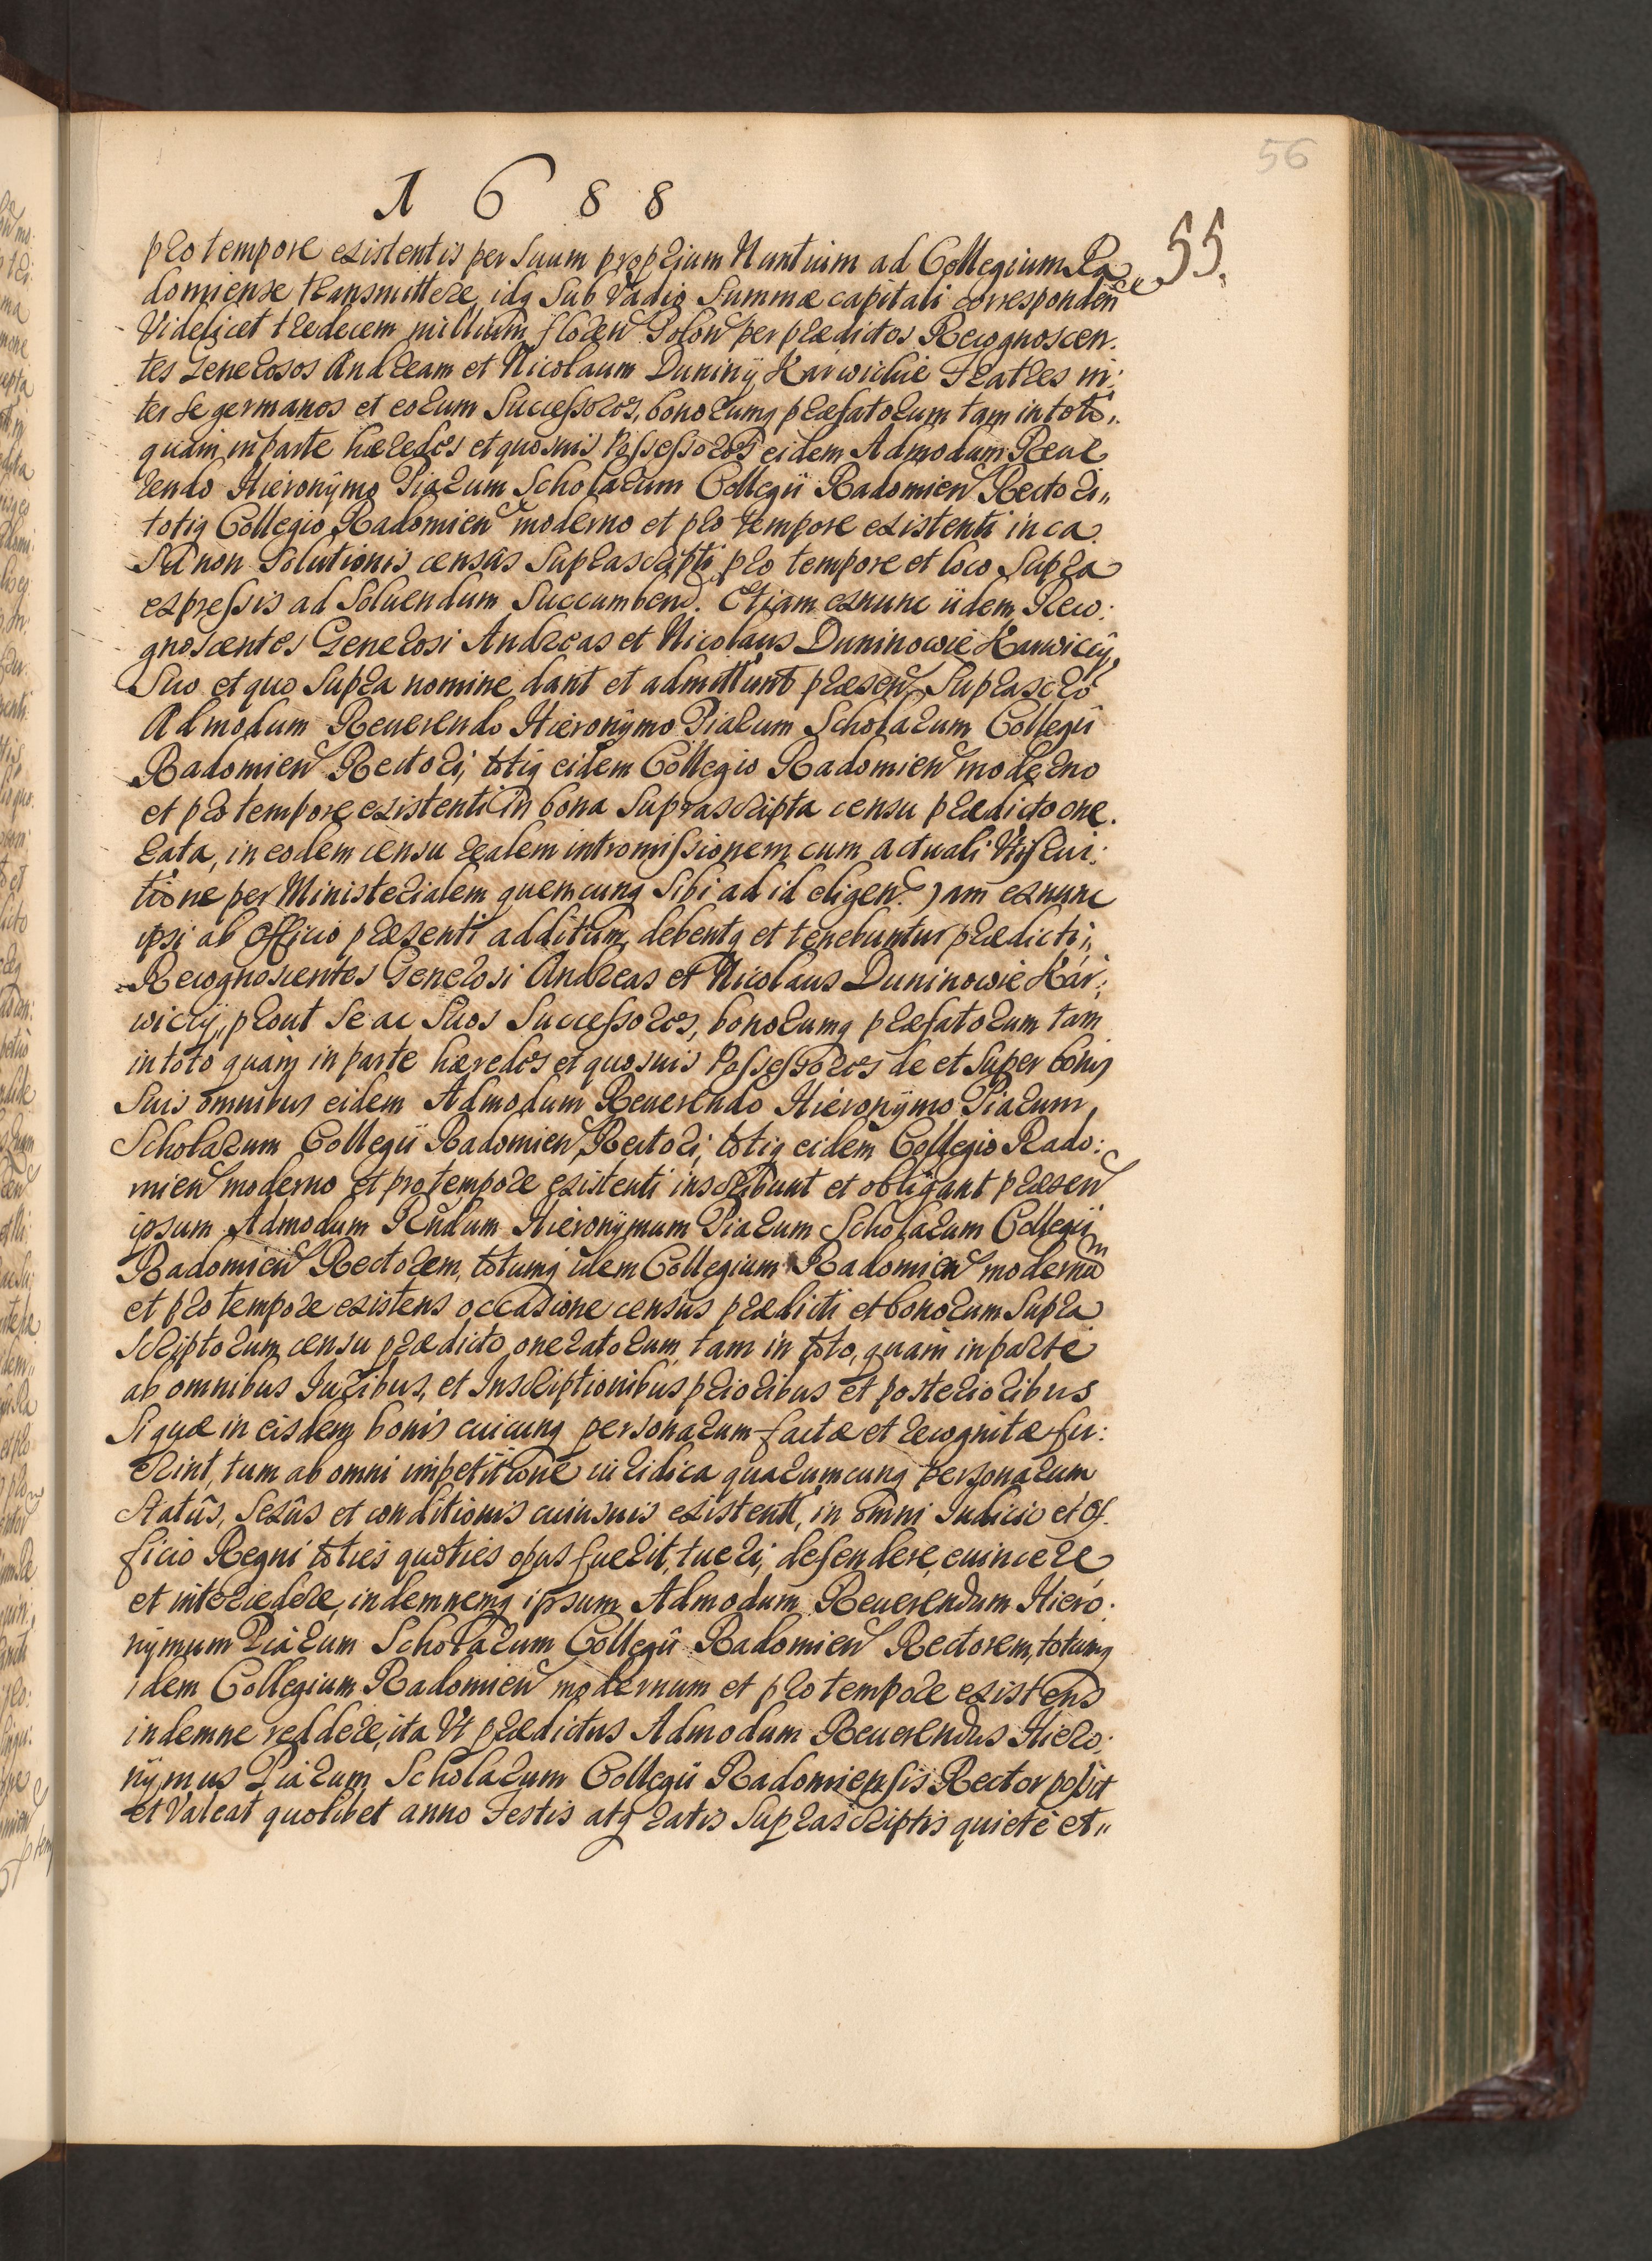 56
1688
55.
pro tempore existentis per suum proprium Nuntium ad Collegium Ra
domiense transmittere, idq sub vadio summæ capitali corresponden
Videlicet tredecem millium floren Polon per prædictos Recognoscen.
tes Generosos Andream et Nicolaum Duniny Karwickie Fratres in:
ter se germanos et eorum Successores, bonorumq præfatorum tam in toto,,
quàm in parte hæredes et quosuis Possessores eidem Admodum Reue
rendo Hieronÿmo Piarum Scholarum Collegii Radomien Rectori,,
totiq Collegio Radomien moderno et pro tempore existenti in ca.
su non solutionis censûs suprascripti pro tempore et loco supra
expressis ad soluendum succumbend. Etiam exnunc iidem Reco:
gnoscentes Generosi Andreas et Nicolaus Duninowie Karwiccÿ,
suo et quo supra nomine dant et admittunt præsen suprascro
Admodum Reuerendo Hieronÿmo Piarum Scholarum Collegii
Radomien Rectori, totiq eidem Collegio Radomien moderno
et pro tempore existenti in bona suprascripta censu prædicto one.
rata, in eodem censu realem intromissionem cum actuali
tione per Ministerialem quemcunq sibi ad id eligen. Jam exnunc
ipsi ab Officio præsenti additum, debentq et tenebuntur prædicti,,
Recognoscentes Generosi Andreas et Nicolaus Duninowie Kar:
wiccÿ, prout se ac suos Successores, bonorumq præfatorum tam
in toto quàm in parte hæredes et quosuis Possessores de et super bonis
suis omnibus eidem Admodum Reuerendo Hieronÿmo Piarum
Scholarum Collegii Radomien Rectori, totiq eidem Collegio Rado:
mien moderno et pro tempore existenti inscribunt et obligant præsen
ipsum Admodum Rndum Hieronÿmum Piarum Scholarum Collegii
Radomien Rectorem, totumq idem Collegium Radomien modernum
et pro tempore existens occasione census prædicti et bonorum supra
scriptorum censu prædicto oneratorum tam in toto, quàm in parte
ab omnibus Juribus, et Inscriptionibus prioribus et posterioribus
si quæ in eisdem bonis cuicunq personarum factæ et recognitæ fu:
erint, tum ab omni impetitione iuridica quarumcunq personarum
statûs, sexûs et conditionis cuiusuis existent, in omni Iudicio et Of.
ficio Regni toties quoties opus fuerit, tueri, defendere, euincere
et intercedere, indemnemq ipsum Admodum Reuerendum Hiero.
nÿmum Piarum Scholarum Collegii Radomien Rectorem, totumq
idem Collegium Radomien modernum et pro tempore existens
indemne reddere, ita Vt prædictus Admodum Reuerendus Hiero:
nÿmus Piarum Scholarum Collegii Radomiensis Rector possit
et Valeat quolibet anno Festis atq ratis suprascriptis quietè et,,